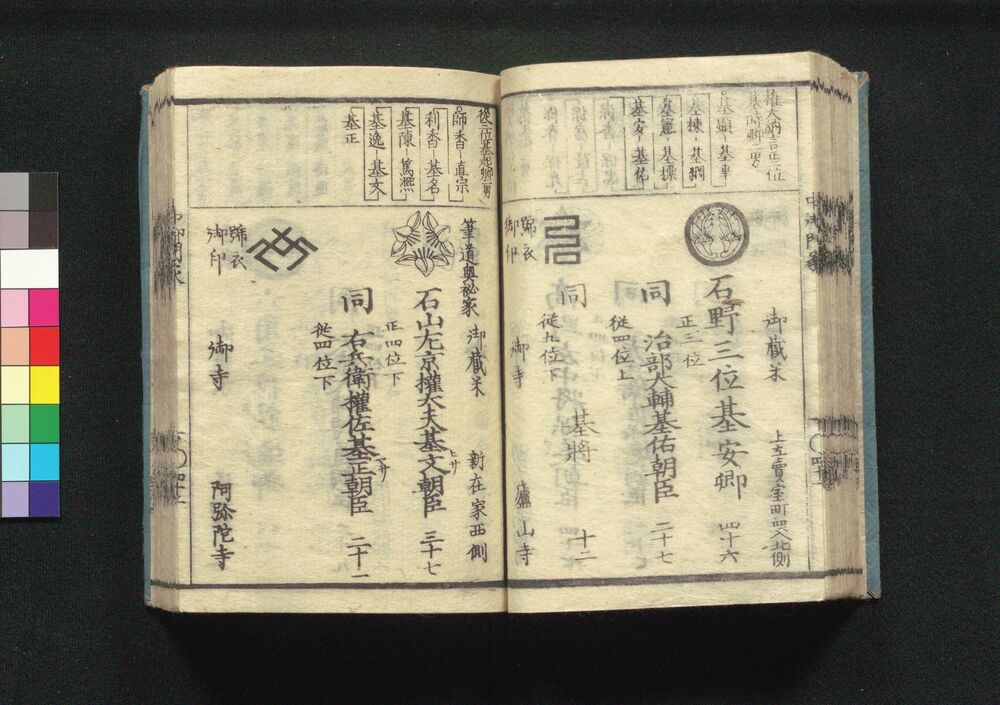 権大納言正二位
基時卿二男
基顕-基幸
基棟-基綱
基憲-基標
基安-基佑
御蔵米
上立賣室町西入北側
石野三位基安卿 四十六
正三位
同 治部大輔基佑朝臣 二十七
従四位上
同 基将 十二
従五位下
雑衣
御印
御寺
廬山寺
従二位基起卿二男
師香-直宗
利香-基名
基陳-篤凞
基逸-基文
基正
筆道奥秘家
御蔵米
新在家西側
石山左京權大夫基文朝臣 三十七
フサ
正四位下
同 右兵衛權佐基正朝臣 二十一
マサ
従四位下
雑衣
御印
御寺
阿弥陀寺
中御門家
四十二